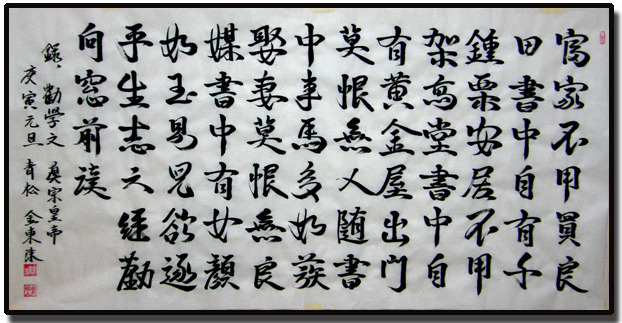 富家不用買良
田書中自有千
鍾粟安居不用
架高堂書中自
有黃金屋出門
莫恨無人随書
中車馬多如簇
娶妻莫恨無良
媒書中有女顏
如玉男兒欲遂
平生志六經勤
向窓前讀
錄 勸學文 眞宗皇帝
庚寅元旦 青松 金東洙